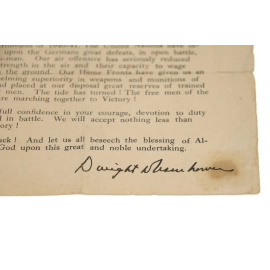 upon the Germans great defeats, in open battle,
man. Our air offensive has seriously reduced
strength in the air and their capacity to wage
the ground. Our Home Fronts have given us an
helming superiority in weapons and munitions of
d placed at our disposal great reserves of trained
men. The tide has turned! The free men of the
re marching together to Victory!
full confidence in your courage, devotion to duty
l in battle. We will accept nothing less than
ory!
uck! And let us all beseech the blessing of Al-
God upon this great and noble undertaking.
Dwight D Eisenhower